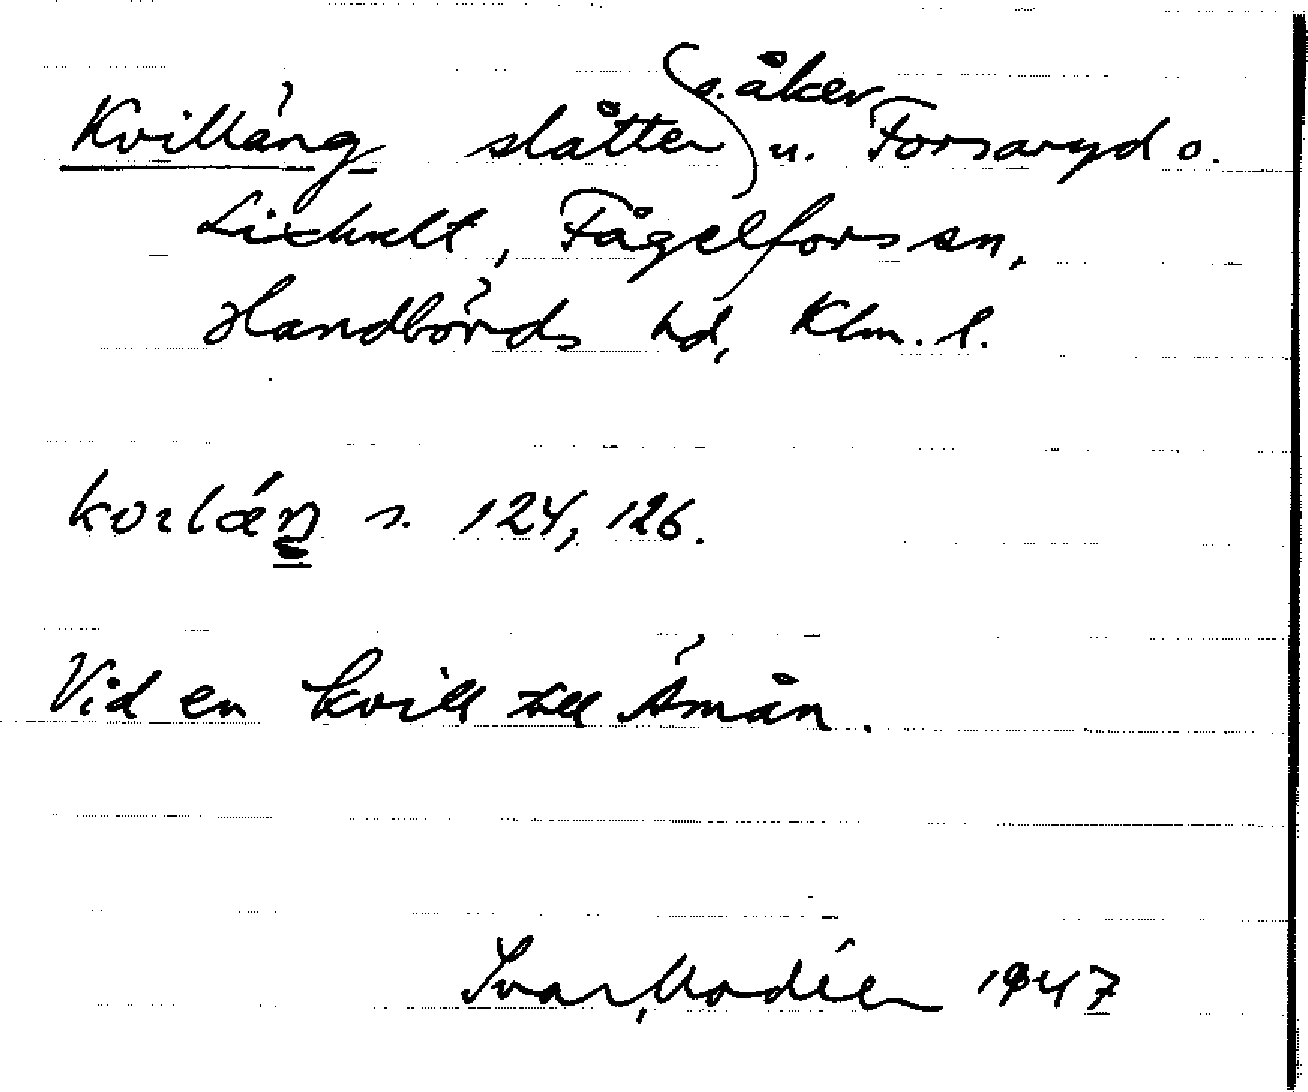 Kvilläng slåtter s. åker u. Forsaryd o.
Lixhult, Fågelfors sn,
Handbörds hd, Klm. l.
s. 124, 126.
Vid en kvill till Åmån.
Ivar Modéer 1947